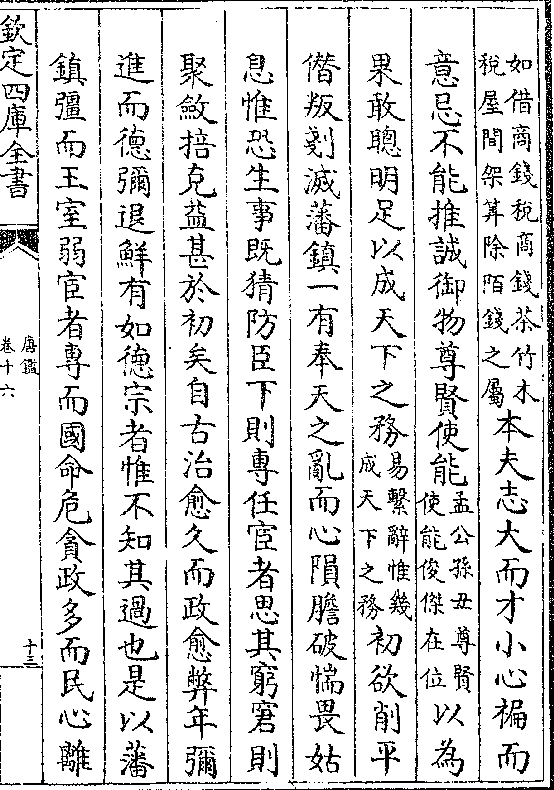 如借商錢税商錢茶竹木
税屋間架筭除陌錢之屬
本夫志大而才小心褊而
意忌不能推誠御物尊賢使能
孟公孫丑尊賢
使能俊傑在位
以為
果敢聰明足以成天下之務
易繫辭惟幾
成天下之務
初欲削平
僭叛剗滅藩鎮一有奉天之亂而心隕膽破惴畏姑
息惟恐生事既猜防臣下則專任宦者思其窮窘則
聚斂掊克益甚於初矣自古治愈久而政愈弊年彌
進而德彌退鮮有如德宗者惟不知其過也是以藩
鎮彊而王室弱宦者專而國命危貪政多而民心離
欽定四庫全書
唐鑑
卷十六
十三